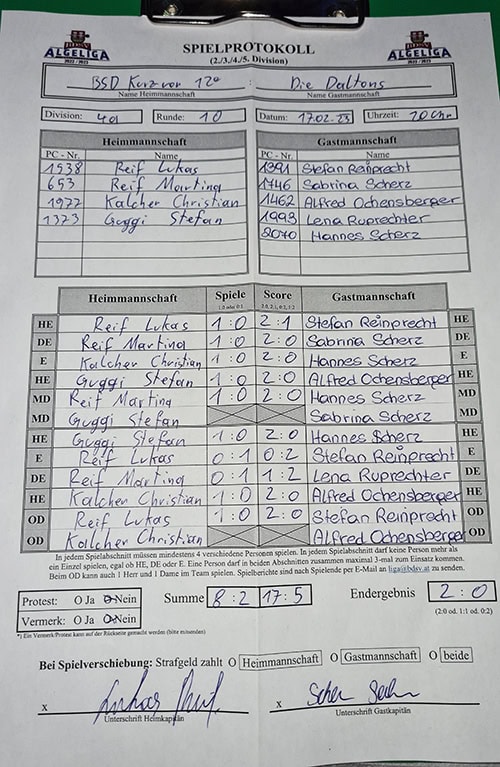 BDSV
ALGELIGA
2022 / 2023
SPIELPROTOKOLL
(2./3./4./5. Division)
BDSV
ALGELIGA
2022 / 2023
BSD Kurz vor 12e : Die Daltons
Name Heimmannschaft Name Gastmannschaft
Division: 4a Runde: 10 Datum: 17.02.23 Uhrzeit: 20 Uhr
Heimmannschaft Gastmannschaft
PC - Nr. Name PC - Nr. Name
1538 Reif Lukas 1391 Stefan Reinprecht
653 Reif Martina 1746 Sabrina Scherz
1977 Kalcher Christian 1462 Alfred Ochensberger
1373 Guggi Stefan 1993 Lena Ruprechter
2070 Hannes Scherz
Heimmannschaft Spiele Score Gastmannschaft
1:0 oder 0:1 2:0, 2:1, 0:2, 1:2
HE Reif Lukas 1:0 2:1 Stefan Reinprecht HE
DE Reif Martina 1:0 2:0 Sabrina Scherz DE
E Kalcher Christian 1:0 2:0 Hannes Scherz E
HE Guggi Stefan 1:0 2:0 Alfred Ochensberger HE
MD Reif Martina 1:0 2:0 Hannes Scherz MD
MD Guggi Stefan Sabrina Scherz MD
HE Guggi Stefan 1:0 2:0 Hannes Scherz HE
E Reif Lukas 0:1 0:2 Stefan Reinprecht E
DE Reif Martina 0:1 1:2 Lena Ruprechter DE
HE Kalcher Christian 1:0 2:0 Alfred Ochensberger HE
OD Reif Lukas 1:0 2:0 Stefan Reinprecht OD
OD Kalcher Christian Alfred Ochensberger OD
In jedem Spielabschnitt müssen mindestens 4 verschiedene Personen spielen. In jedem Spielabschnitt darf keine Person mehr als
ein Einzel spielen, egal ob HE, DE oder E. Eine Person darf in beiden Abschnitten zusammen maximal 3-mal zum Einsatz kommen.
Beim OD kann auch 1 Herr und 1 Dame im Team spielen. Spielberichte sind nach Spielende per E-Mail an liga@bdsv.at zu senden.
Protest: O Ja O Nein Summe 8:2 17:5 Endergebnis 2:0
Vermerk: O Ja O Nein (2:0 od. 1:1 od. 0:2)
*) Ein Vermerk/Protest kann auf der Rückseite gemacht werden (bitte ankreuzen)
Bei Spielverschiebung: Strafgeld zahlt O Heimmannschaft O Gastmannschaft O beide
x x
Unterschrift Heimkapitän Unterschrift Gastkapitän